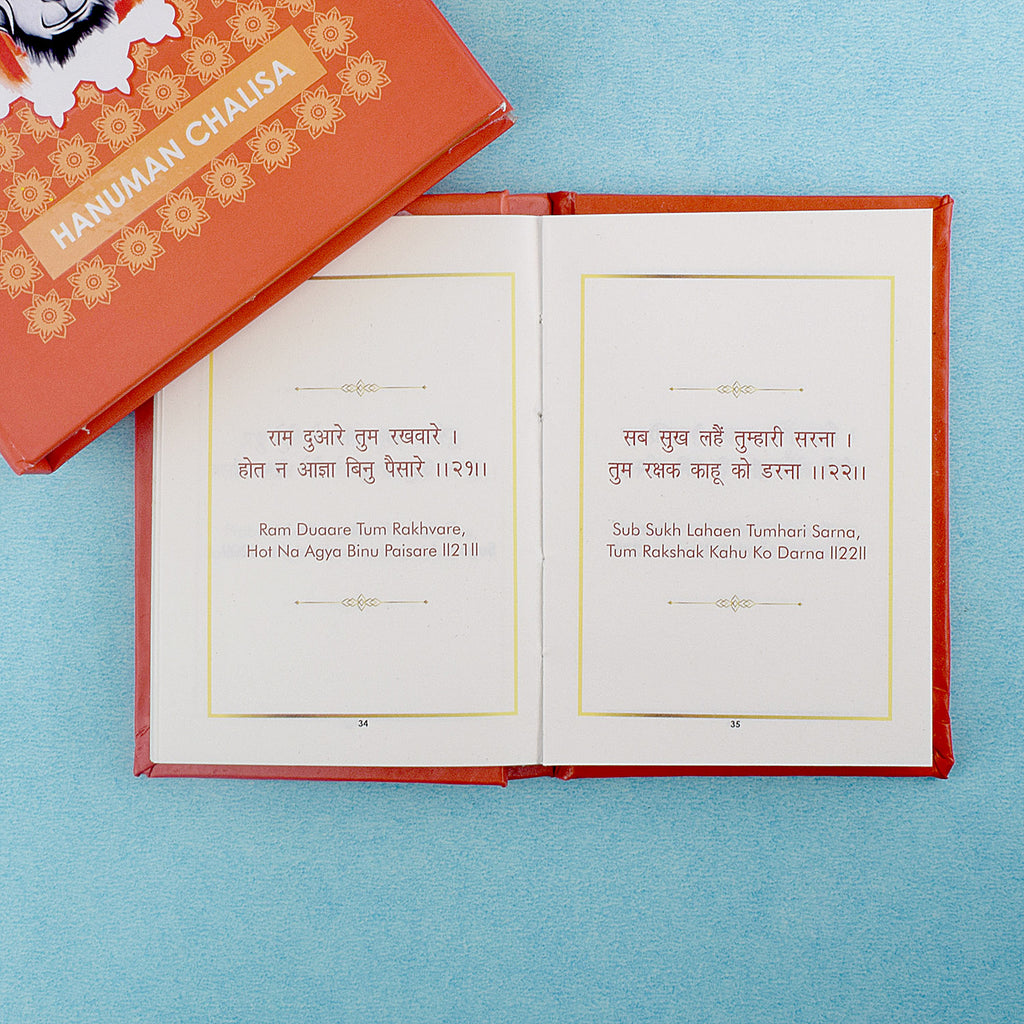 HANUMAN CHALISA
राम दुआरे तुम रखवारे ।
होत न आज्ञा बिनु पैसारे ।।२१।।
Ram Duaare Tum Rakhvare,
Hot Na Agya Binu Paisare ll21ll
34
सब सुख लहैं तुम्हारी सरना ।
तुम रक्षक काहू को डरना ।।२२।।
Sub Sukh Lahaen Tumhari Sarna,
Tum Rakshak Kahu Ko Darna ll22ll
35